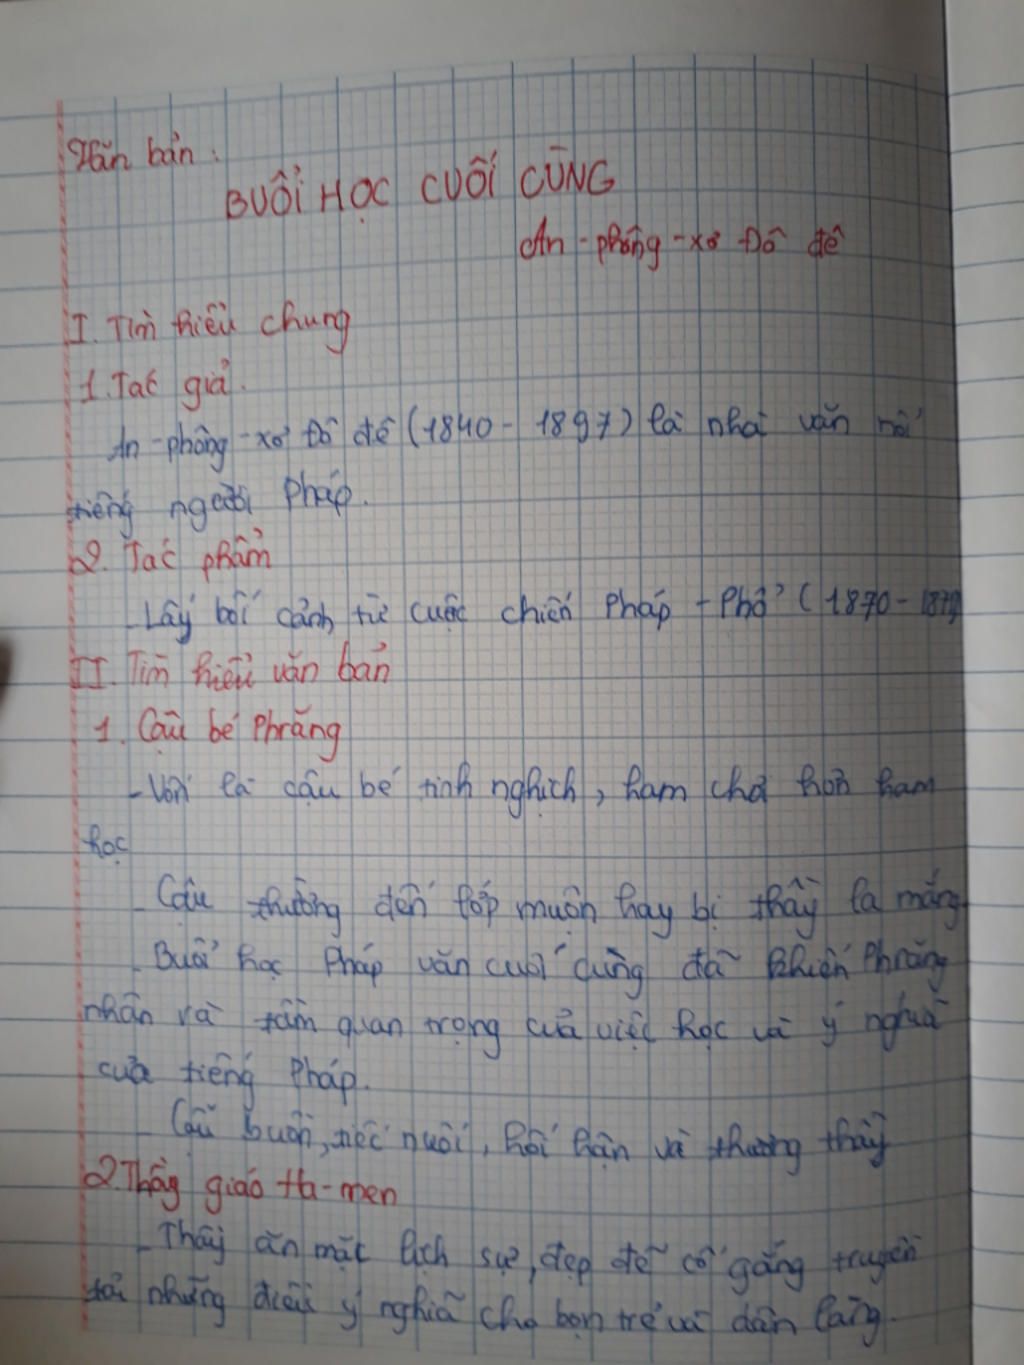 Văn bản :
BUỔI HỌC CUỐI CÙNG
An - phông - xơ Đô đê
I. Tìm hiểu chung
1. Tác giả.
An - phông - xơ Đô đê (1840 - 1897) là nhà văn nổi
tiếng người Pháp.
2. Tác phẩm
- Lấy bối cảnh từ cuộc chiến Pháp - Phổ (1870 -
II. Tìm hiểu văn bản
1. Cậu bé Phrăng
- Vốn là cậu bé tinh nghịch, ham chơi hơn ham
học
- Cậu thường đến lớp muộn hay bị thầy la mắng
- Buổi học Pháp văn cuối cùng đã khiến Phrăng
nhận ra tầm quan trọng của việc học và ý nghĩa
của tiếng Pháp.
- Cậu buồn, tiếc nuối, hối hận và thương thầy
2. Thầy giáo Ha-men
- Thầy ăn mặc lịch sự, đẹp đẽ cố gắng truyền
tải những điều ý nghĩa cho bọn trẻ và dân làng.